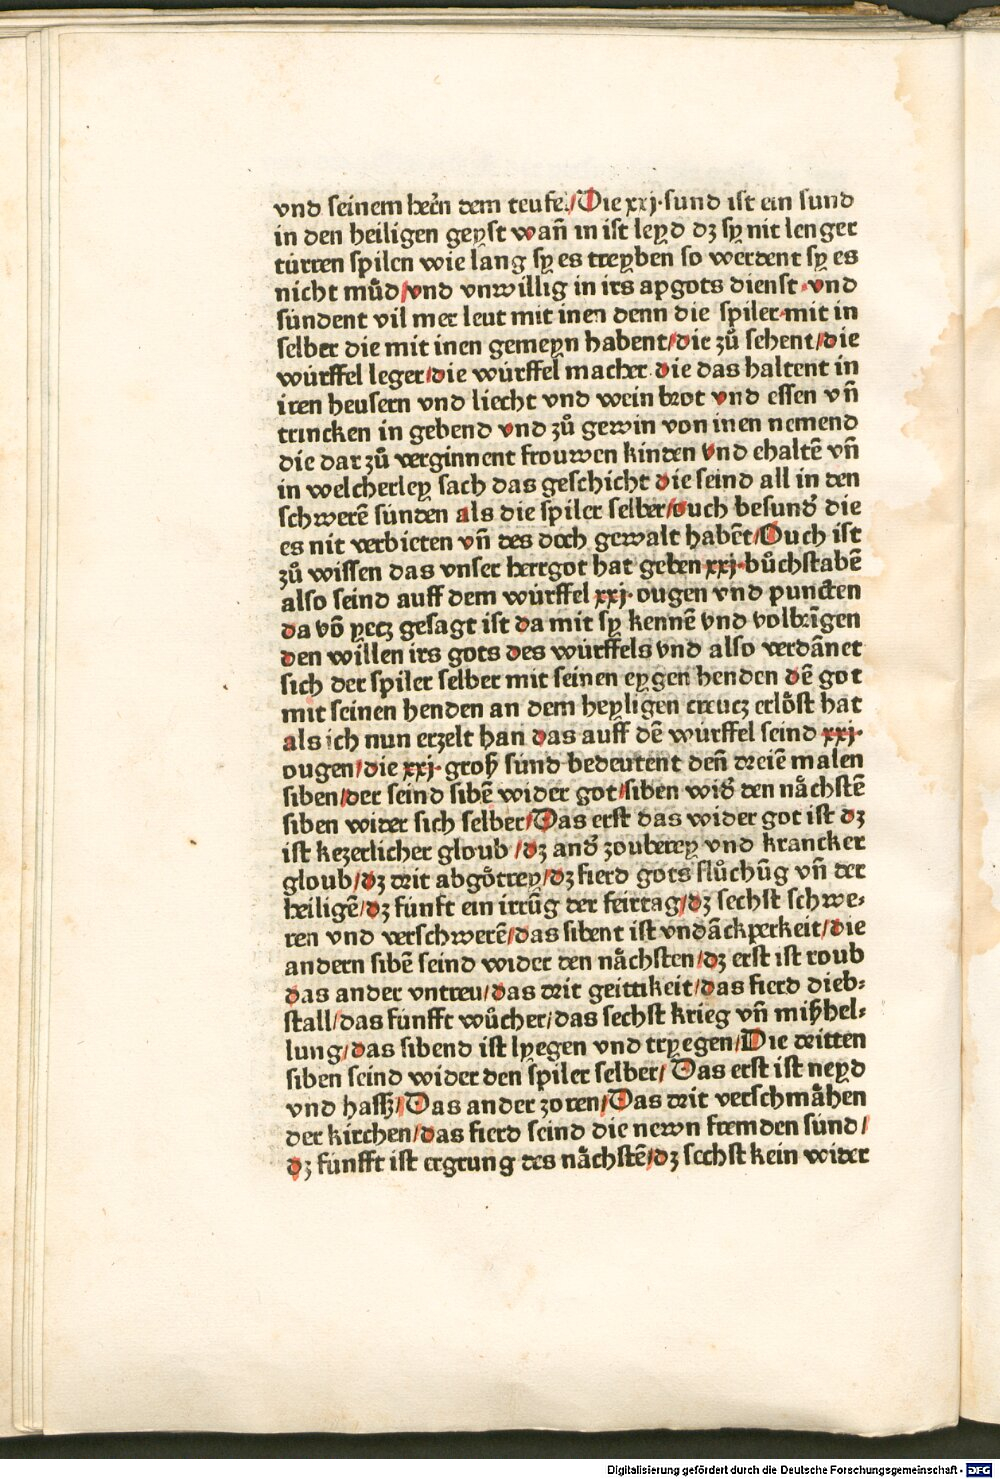 vnd seinem herꝛ̃n dem teufel/Die xxj·sund ist ein sund
in den heiligen geyst wañ in ist leyd dz sy nit lenger
türren spilen wie lang sy es treyben so werdent sy es
nicht muͤd/vnd vnwillig in irs apgots dienst·vnd
sündent vil mer leut mit inen denn die spiler·mit in
selber die mit inen gemeyn habent/die zuͦ sehent/die
würffel leger/die würffel macher die das haltent in
iren heusern vnd liecht vnd wein brot vnd essen vñ
trincken in gebend vnd zuͦ gewin von inen nemend
die dar zuͦ verginnent frouwen kinden vnd ehaltẽ vñ
in welcherley sach das geschicht die seind all in den
schwerẽ sünden als die spiler selber/ouch besundꝰ die
es nit verbieten vñ des doch gewalt habẽt/Ouch ist
zuͦ wissen das vnser herrgot hat geben xxj·buͦchstabẽ
also seind auff dem würffel xxj·ougen vnd puncten
da võ yetz gesagt ist da mit sy kennẽ vnd volbrĩgen
den willen irs gots des würffels vnd also verdãnet
sich der spiler selber mit seinen eygen henden dẽ got
mit seinen henden an dem heyligen creucz erloͤst hat
als ich nun erzelt han das auff dẽ würffel seind xxj·
ougen/die xxj·groß sünd bedeutent deñ dreiẽ malen
siben/der seind sibẽ wider got/siben widꝰ den naͤchstẽ
siben wider sich selber/Das erst das wider got ist dz
ist kezerlicher gloub/dz andꝰ zouberey vnd krancker
gloub/dz drit abgoͤtrey/dz fierd gots fluͦchũg vñ der
heiligẽ/dz fünft ein irrũg der feirtag/dz sechst schwe⸗
ren vnd verschwerẽ/das sibent ist vndãckperkeit/die
andern sibẽ seind wider den naͤchsten/dz erst ist roub
das ander vntreu/das drit geittikeit/das fierd dieb⸗
stall/das fünfft wuͦcher/das sechst krieg vñ mißhel⸗
lung/das sibend ist lyegen vnd tryegen/Die dritten
siben seind wider den spiler selber/Das erst ist neyd
vnd hassz/Das ander zoren/Das drit verschmaͤhen
der kirchen/das fierd seind die newn fremden sünd/
dz fünfft ist ergrung des naͤchstẽ/dz sechst kein wider
Digitalisierung gefördert durch die Deutsche Forschungsgemeinschaft - DFG